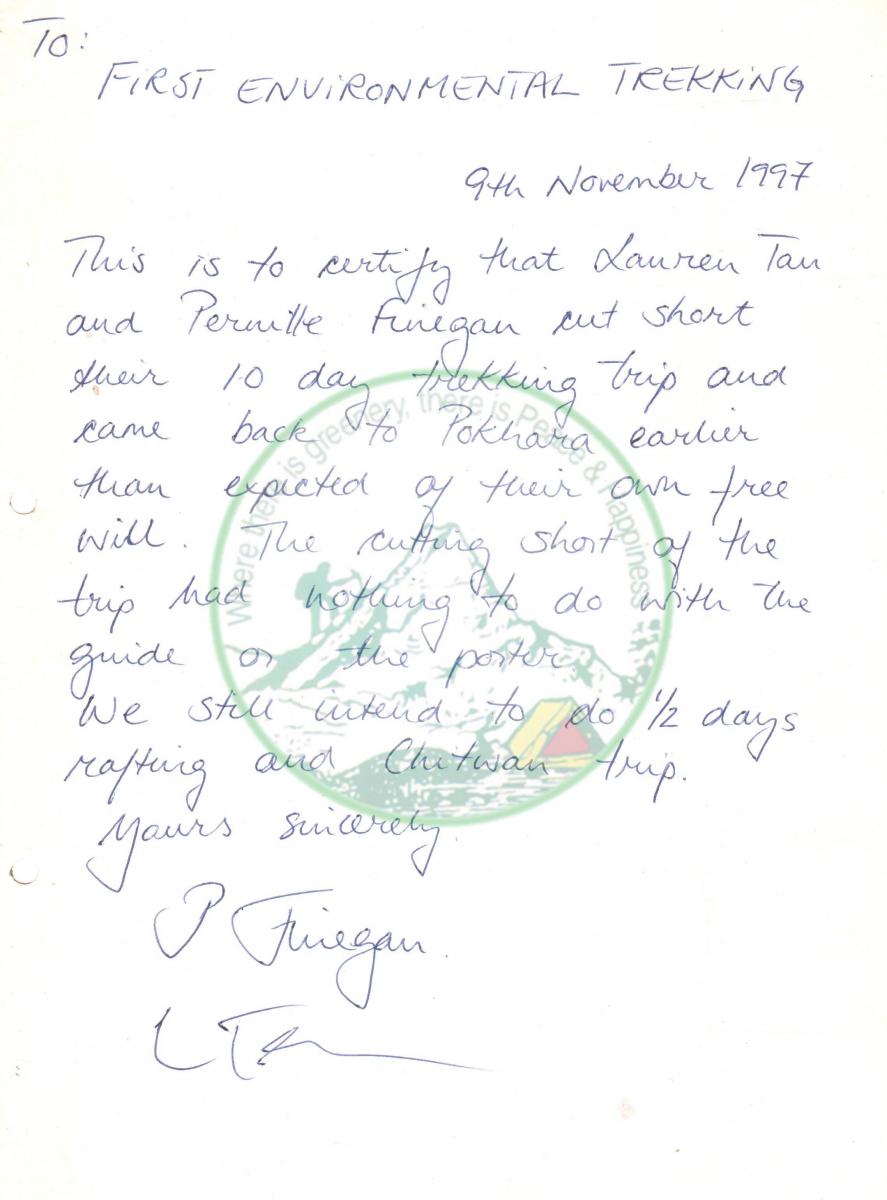 To:
FIRST ENVIRONMENTAL TREKKING
9th November 1997
This is to certify that Lauren Tan
and Pernille Finegan cut short
their 10 day trekking trip and
came back to Pokhara earlier
than expected of their own free
will. The cutting short of the
trip had nothing to do with the
guide or the porter.
We still intend to do 1/2 days
rafting and Chitwan trip.
Yours sincerely.
P Finegan.
L Tan
Where there is greenery, there is Peace & Happiness